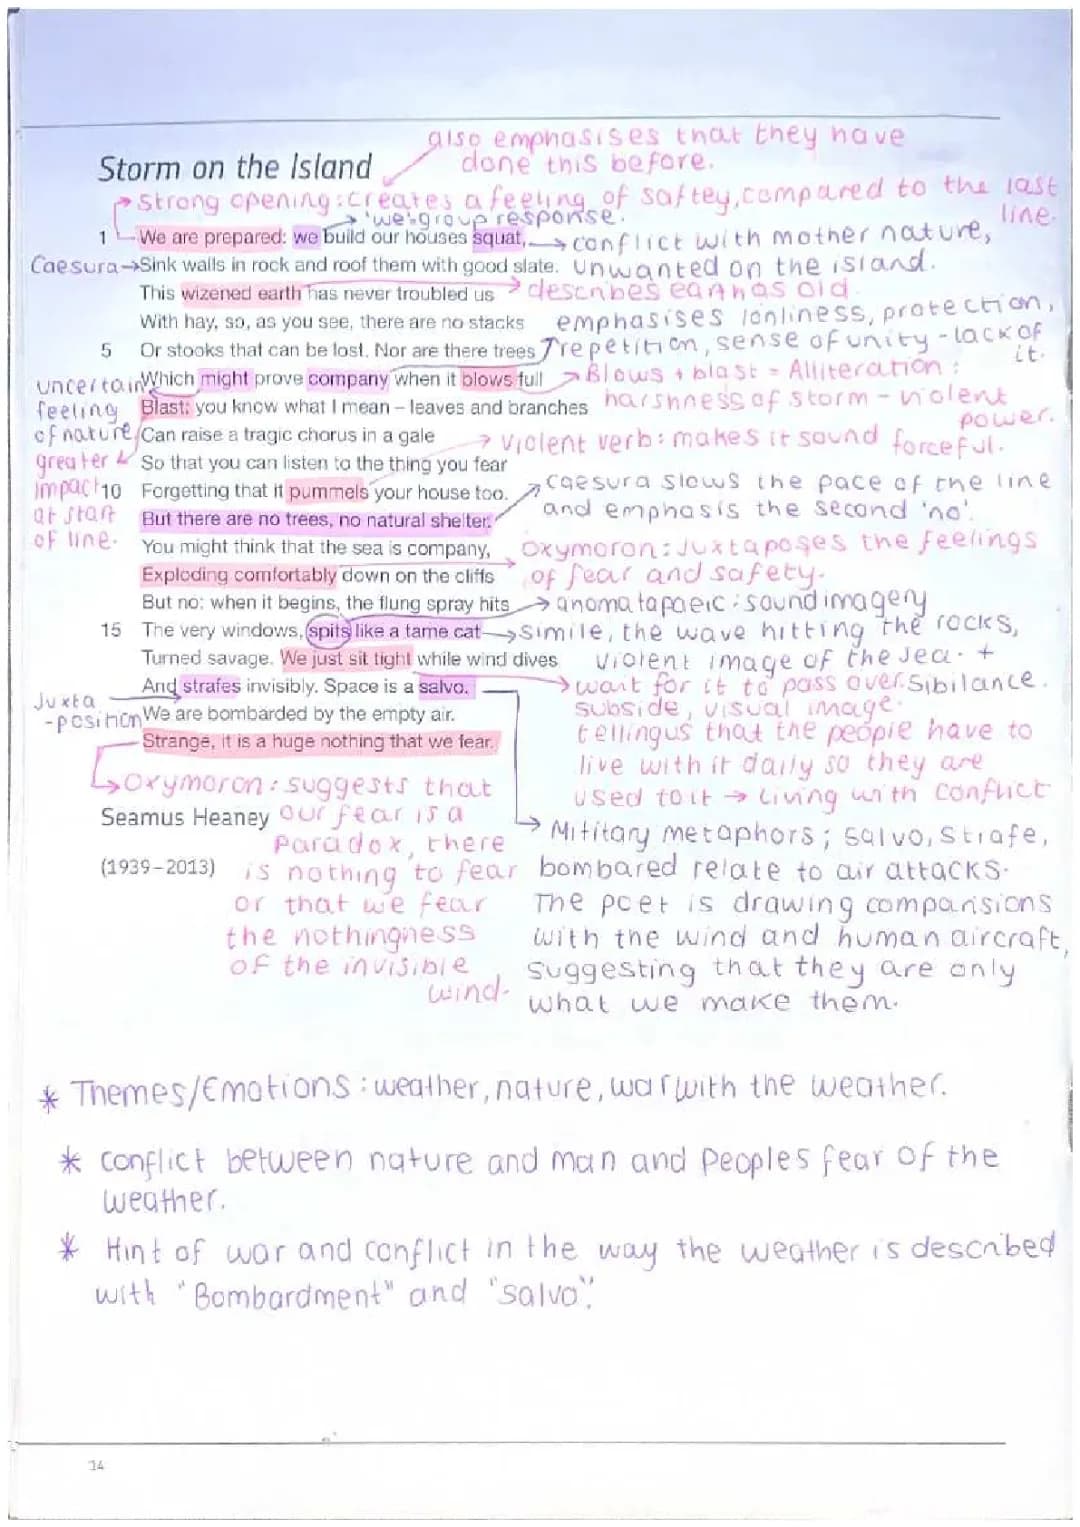 also emphasises that they have
done this before.
Storm on the Island
Strong opening: creates a feeling of saftey, compared to the last
line.
'we': group response.
1 We are prepared: we build our houses squat,
conflict with mother nature,
Caesura
Sink walls in rock and roof them with good slate.
unwanted on the island.
This wizened earth has never troubled us
describes earth as old.
With hay, so, as you see, there are no stacks
emphasises lonliness, protection,
5 Or stooks that can be lost. Nor are there trees
repetition, sense of unity - lack of
it.
Which might prove company when it blows full
Blows + blast = Alliteration:
uncertain
feeling
of nature
Blast: you know what I mean – leaves and branches
harshness of storm - violent
power.
Can raise a tragic chorus in a gale
violent verb: makes it sound forceful.
greater
impact
at start
of line.
So that you can listen to the thing you fear
10 Forgetting that it pummels your house too.
caesura slows the pace of the line
and emphasis the second 'no'.
But there are no trees, no natural shelter.
You might think that the sea is company,
Oxymoron: Juxtaposes the feelings
of fear and safety.
Exploding comfortably down on the cliffs
But no: when it begins, the flung spray hits
anomatapaeic: sound imagery
15 The very windows, spits like a tame cat
Simile, the wave hitting the rocks,
violent image of the sea. +
Sibilance.
Turned savage. We just sit tight while wind dives
wait for it to pass over.
subside, visual image.
tellingus that the people have to
live with it daily so they are
used to it → Living with conflict
And strafes invisibly. Space is a salvo.
Juxta
-position
We are bombarded by the empty air.
Strange, it is a huge nothing that we fear.
Oxymoron: suggests that
our fear is a
paradox, there
is nothing to fear
or that we fear
the nothingness
of the invisible
wind.
Seamus Heaney
(1939–2013)
Military metaphors; salvo, Strafe,
bombared relate to air attacks.
The poet is drawing comparisions
with the wind and human aircraft,
suggesting that they are only
what we make them.
* Themes/Emotions: weather, nature, war with the weather.
* conflict between nature and man and Peoples fear of the
weather.
* Hint of war and conflict in the way the weather is described
with "Bombardment" and "salvo".
14